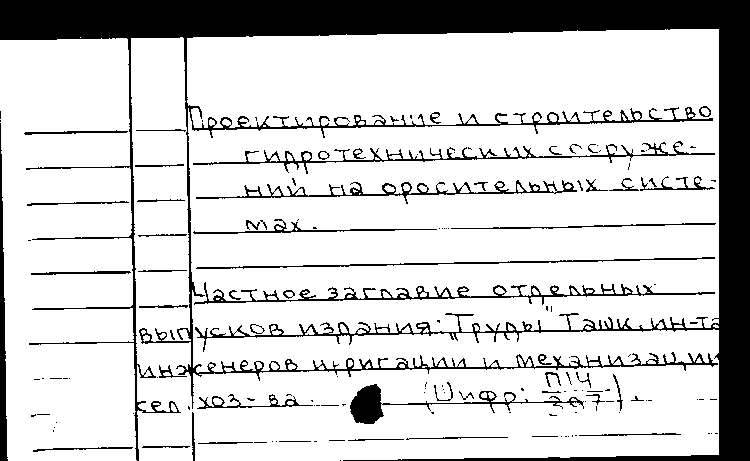 Проектирование и строительство
гидротехнических сооруже-
ний на оросительных систе-
мах.
Частное заглавие отдельных
выпусков издания: „Труды" Ташк. ин-та
инженеров ирригации и механизации
сел. хоз-ва. (Шифр: П14/397).